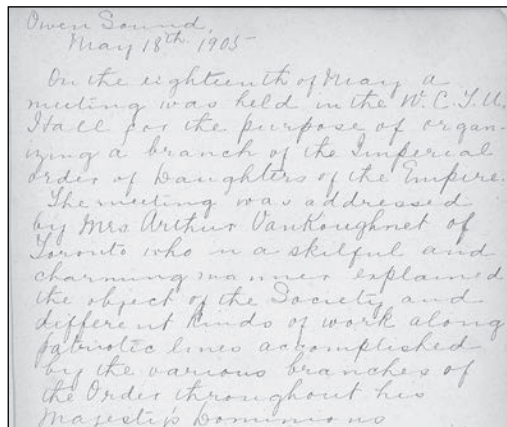 Owen Sound,
May 18th 1905
On the eighteenth of May a
meeting was held in the W.C.T.U.
Hall for the purpose of organ-
izing a branch of the Imperial
Order of Daughters of the Empire.
The meeting was addressed
by Mrs Arthur VanKoughnet of
Toronto who in a skilful and
charming manner explained
the object of the Society and
different kinds of work along
patriotic lines accomplished
by the various branches of
the Order throughout his
Majesty's Dominions